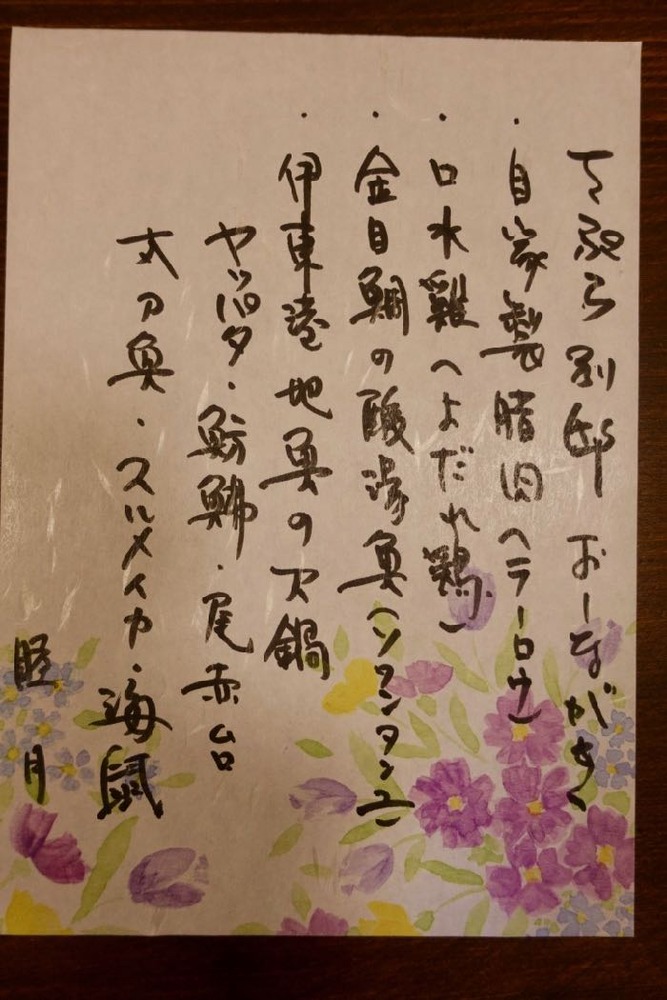 別邸 おしながき
・自家製腊肉(ラーロウ)
・口水鶏(よだれ鶏)
・金目鯛の酸湯魚(ソワンタンユ)
・伊東港 地魚の火鍋
ヤッパタ・魴鮄・尾赤台
太刀魚・スルメイカ・海鼠
睦月